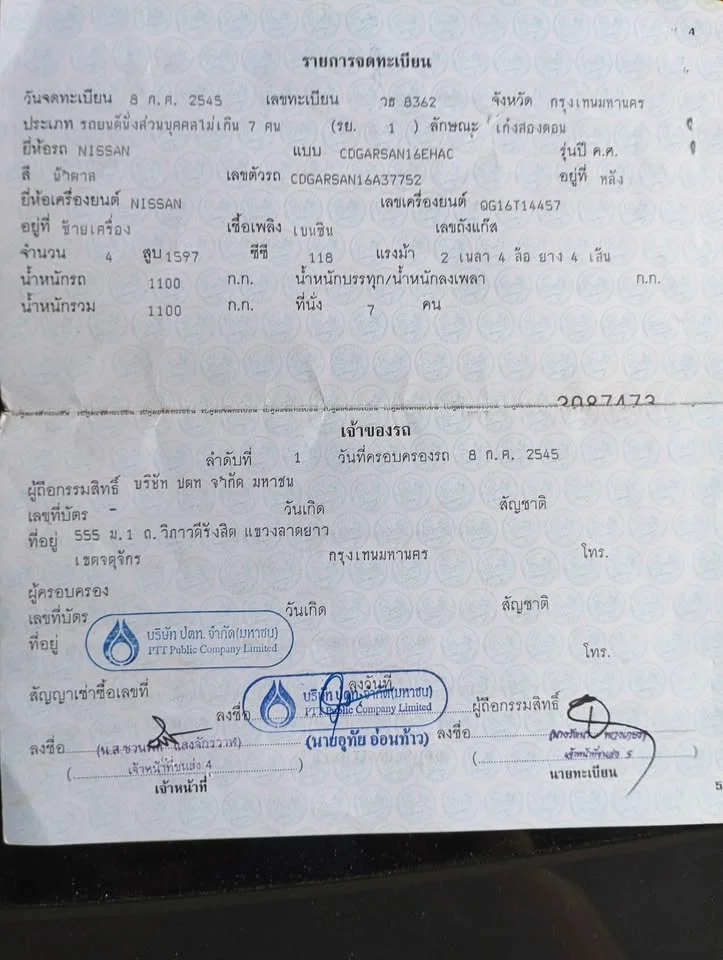 4
รายการจดทะเบียน
วันจดทะเบียน 8 ก.ค. 2545 เลขทะเบียน วธ 8362 จังหวัด กรุงเทพมหานคร
ประเภท รถยนต์นั่งส่วนบุคคลไม่เกิน 7 คน (รย. 1 ) ลักษณะ เก๋งสองตอน
ยี่ห้อรถ NISSAN แบบ CDGARSAN16EHAC รุ่นปี ค.ศ.
สี น้ำตาล เลขตัวรถ CDGARSAN16A37752 อยู่ที่ หลัง
ยี่ห้อเครื่องยนต์ NISSAN เลขเครื่องยนต์ QG16T14457
อยู่ที่ ซ้ายเครื่อง เชื้อเพลิง เบนซิน เลขถังแก๊ส
จำนวน 4 สูบ 1597 ซีซี 118 แรงม้า 2 เพลา 4 ล้อ ยาง 4 เส้น
น้ำหนักรถ 1100 ก.ก. น้ำหนักบรรทุก/น้ำหนักลงเพลา ก.ก.
น้ำหนักรวม 1100 ก.ก. ที่นั่ง 7 คน
3087473
เจ้าของรถ
ลำดับที่ 1 วันที่ครอบครองรถ 8 ก.ค. 2545
ผู้ถือกรรมสิทธิ์ บริษัท ปตท จำกัด มหาชน
เลขที่บัตร - วันเกิด สัญชาติ
ที่อยู่ 555 ม.1 ถ.วิภาวดีรังสิต แขวงลาดยาว
เขตจตุจักร กรุงเทพมหานคร โทร.
ผู้ครอบครอง
เลขที่บัตร วันเกิด สัญชาติ
ที่อยู่ โทร.
บริษัท ปตท. จำกัด(มหาชน)
PTT Public Company Limited
สัญญาเช่าซื้อเลขที่ ลงวันที่
บริษัท ปตท. จำกัด(มหาชน)
PTT Public Company Limited
ลงชื่อ ผู้ถือกรรมสิทธิ์
(นายอุทัย อ่อนท้าว)
ลงชื่อ ลงชื่อ
เจ้าหน้าที่ขนส่ง 4 เจ้าหน้าที่ขนส่ง 5
เจ้าหน้าที่ นายทะเบียน
5